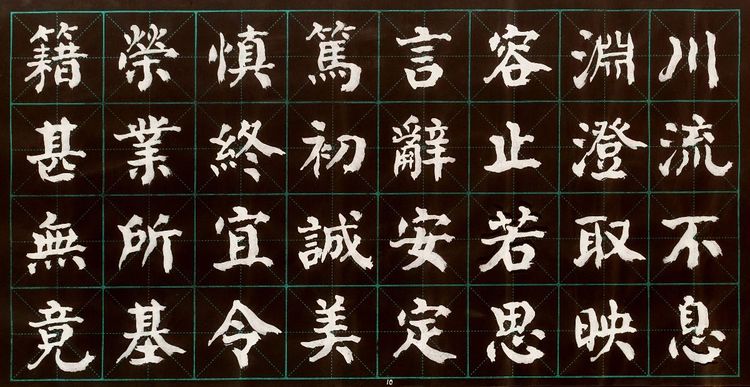 川流不息
淵澄取映
容止若思
言辭安定
篤初誠美
慎終宜令
榮業所基
籍甚無竟
10